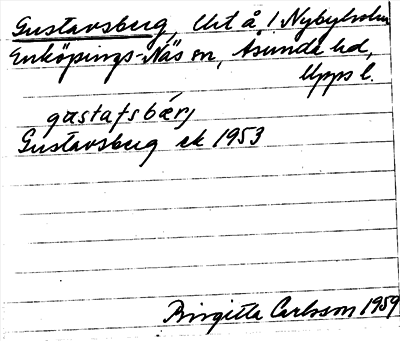 Gustavsberg, lht å 1 Nybyholm
Enköpings-Näs sn, Åsunda hd,
Upps l.
gustafsbärj
Gustavsberg ek 1953
Birgitta Carlsson 1959